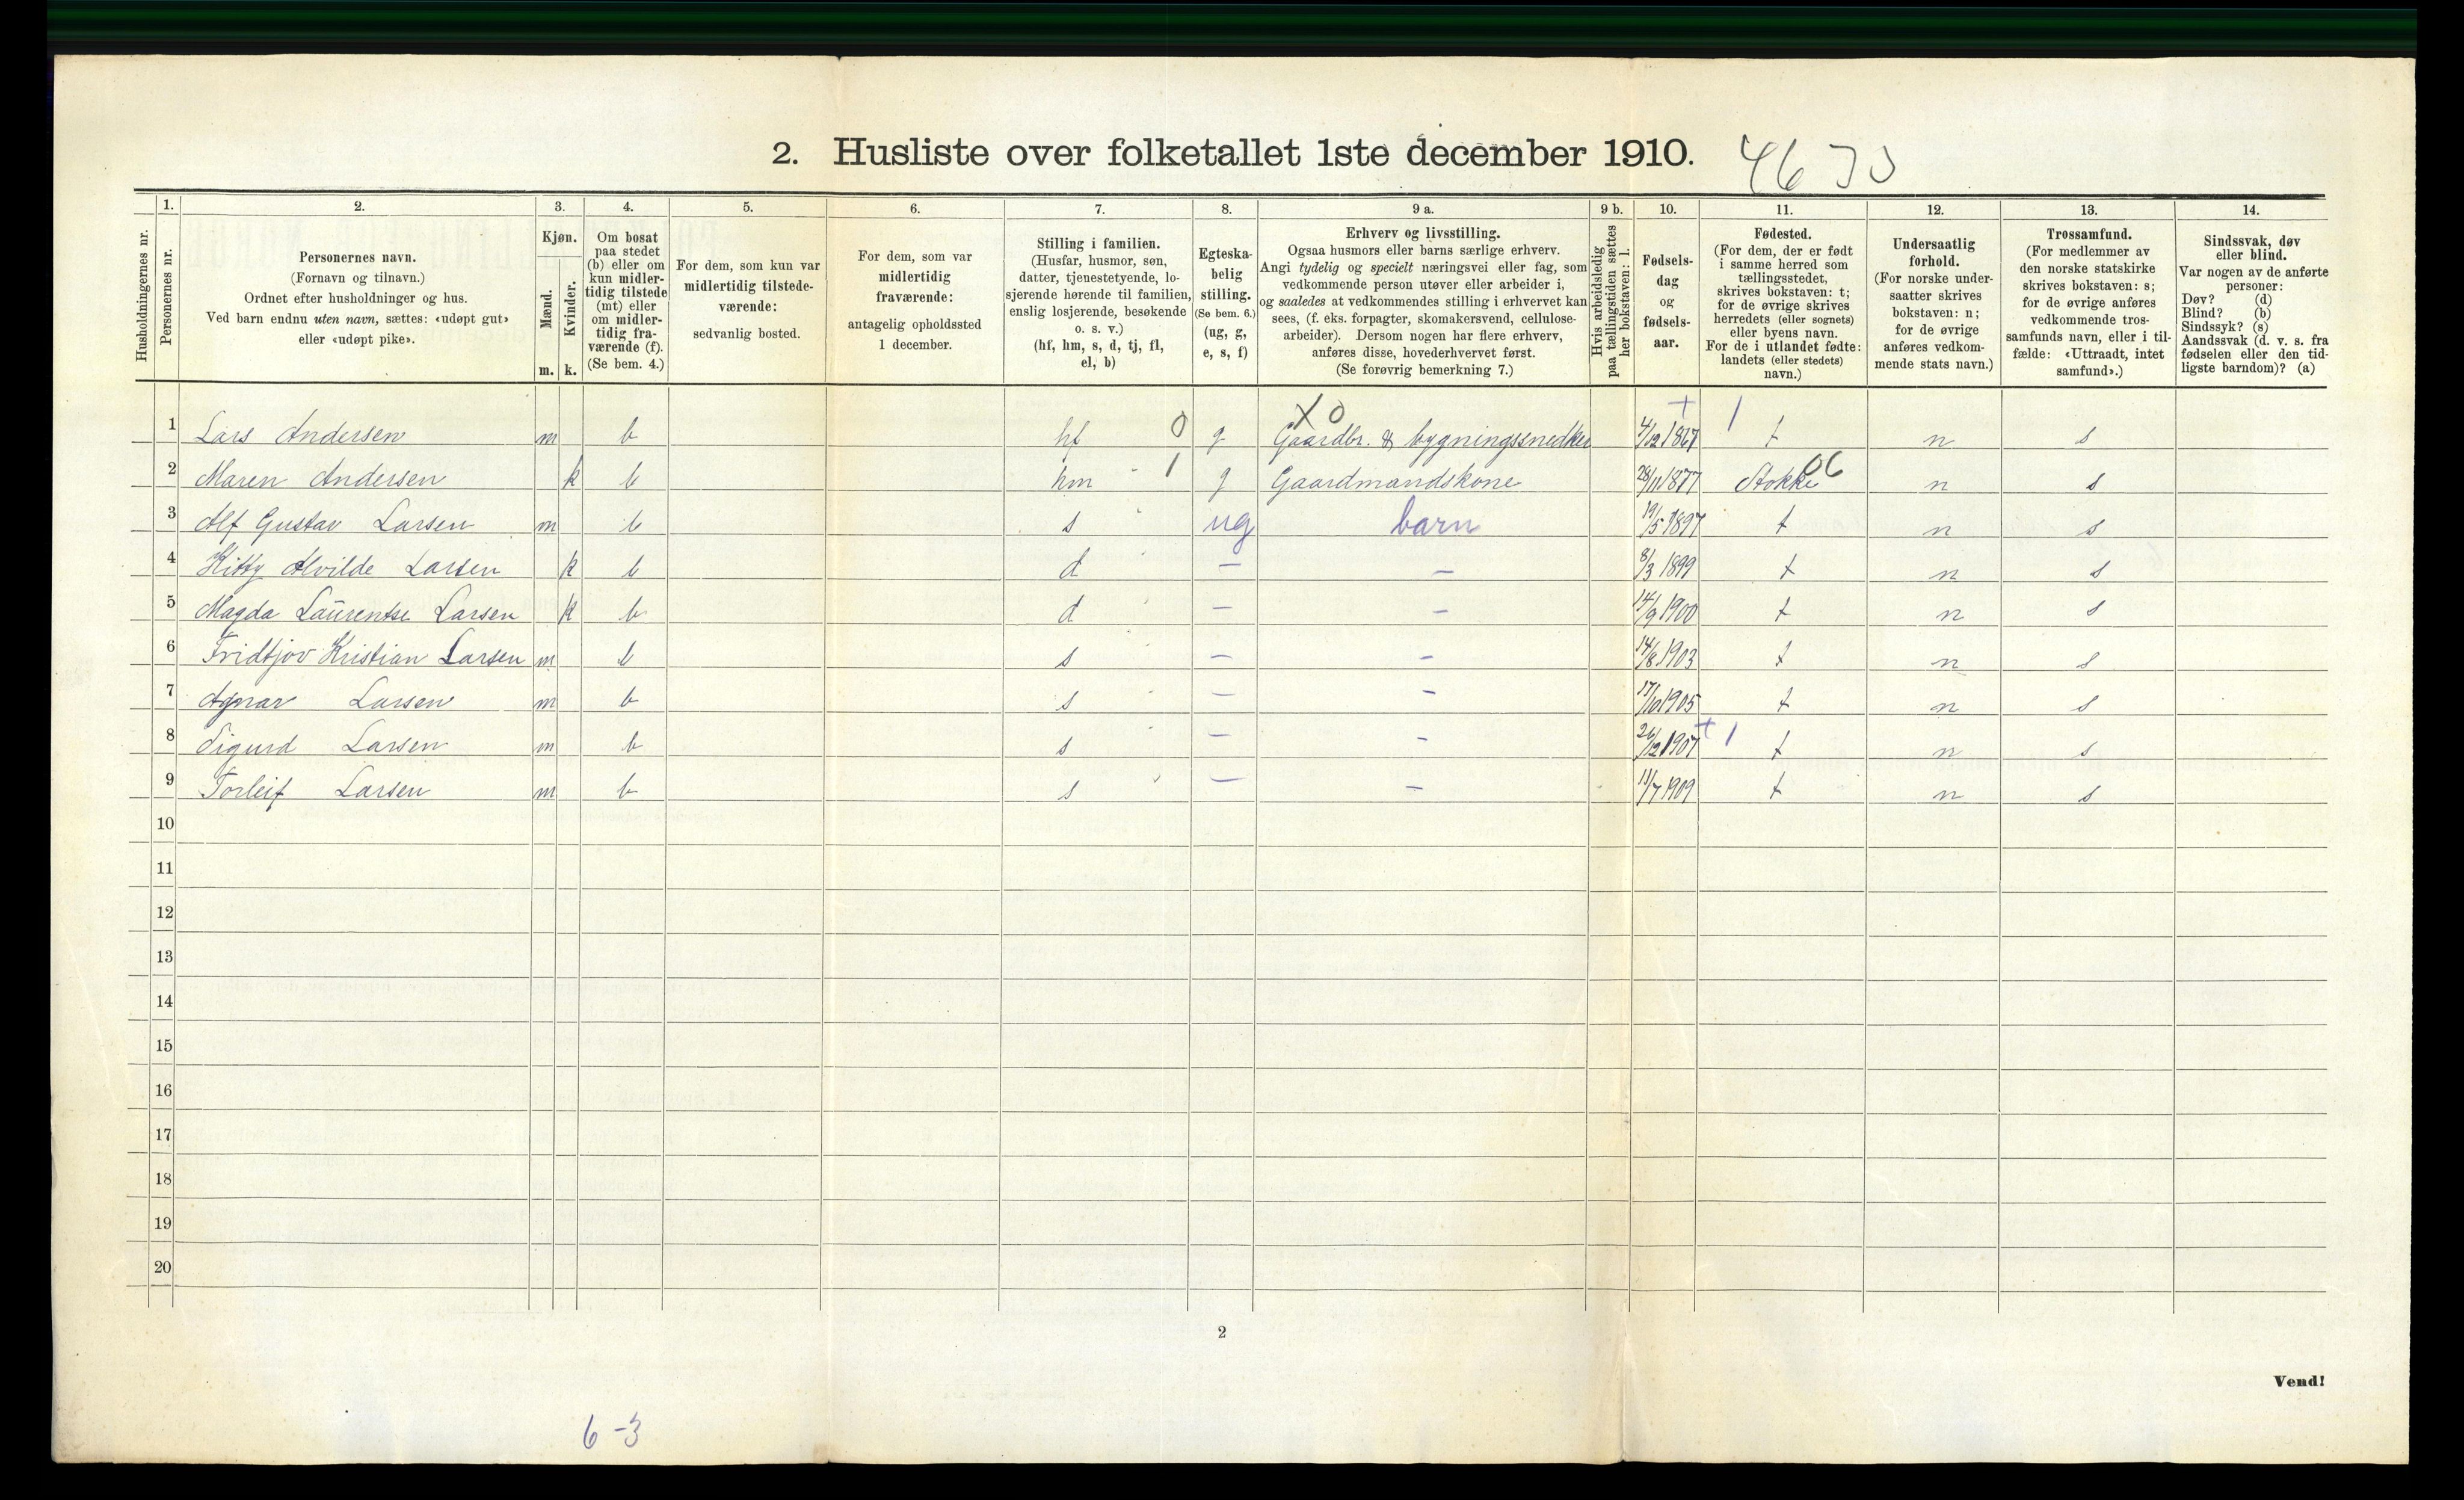 2. Husliste over folketallet 1ste december 1910.
1. 2. 3. 4. 5. 6. 7. 8. 9 a. 9 b. 10. 11. 12. 13. 14.
Husholdningernes nr.
Personernes nr.
Personernes navn.
(Fornavn og tilnavn.)
Ordnet efter husholdninger og hus.
Ved barn endnu uten navn, sættes: «udøpt gut»
eller «udøpt pike».
Kjøn.
Mænd.
Kvinder.
m. k.
Om bosat
paa stedet
(b) eller om
kun midler-
tidig tilstede
(mt) eller
om midler-
tidig fra-
værende (f).
(Se bem. 4.)
For dem, som kun var
midlertidig tilstede-
værende:
sedvanlig bosted.
For dem, som var
midlertidig
fraværende:
antagelig opholdssted
1 december.
Stilling i familien.
(Husfar, husmor, søn,
datter, tjenestetyende, lo-
sjerende hørende til familien,
enslig losjerende, besøkende
o. s. v.)
(hf, hm, s, d, tj, fl,
el, b)
Egteska-
belig
stilling.
(Se bem. 6.)
(ug, g,
e, s, f)
Erhverv og livsstilling.
Ogsaa husmors eller barns særlige erhverv.
Angi tydelig og specielt næringsvei eller fag, som
vedkommende person utøver eller arbeider i,
og saaledes at vedkommendes stilling i erhvervet kan
sees, (f. eks. forpagter, skomakersvend, cellulose-
arbeider). Dersom nogen har flere erhverv,
anføres disse, hovederhvervet først.
(Se forøvrig bemerkning 7.)
Hvis arbeidsledig
paa tællingstiden sættes
her bokstaven: l.
Fødsels-
dag
og
fødsels-
aar.
Fødested.
(For dem, der er født
i samme herred som
tællingsstedet,
skrives bokstaven: t;
for de øvrige skrives
herredets (eller sognets)
eller byens navn.
For de i utlandet fødte:
landets (eller stedets)
navn.)
Undersaatlig
forhold.
(For norske under-
saatter skrives
bokstaven: n;
for de øvrige
anføres vedkom-
mende stats navn.)
Trossamfund.
(For medlemmer av
den norske statskirke
skrives bokstaven: s;
for de øvrige anføres
vedkommende tros-
samfunds navn, eller i til-
fælde: «Uttraadt, intet
samfund».)
Sindssvak, døv
eller blind.
Var nogen av de anførte
personer:
Døv? (d)
Blind? (b)
Sindssyk? (s)
Aandssvak (d. v. s. fra
fødselen eller den tid-
ligste barndom)? (a)
X 0 + 1
1 Lars Andersen m b hf 0 g Gaardbr. & bygningssnedker 4/12 1867 t n s
2 Maren Andersen k b hm 1 g Gaardmandskone 28/11 1877 Stokke 06 n s
3 Alf Gustav Larsen m b s ug barn 19/5 1897 t n s
4 Kitty Alvilde Larsen k b d — — 8/3 1899 t n s
5 Magda Laurentse Larsen k b d — — 14/9 1900 t n s
6 Fridtjov Kristian Larsen m b s — — 14/8 1903 t n s
7 Agnar Larsen m b s — — 17/10 1905 t n s
8 Sigurd Larsen m b s — — 26/12 1907 + 1 t n s
9 Torleif Larsen m b s — — 11/7 1909 t n s
10
11
12
13
14
15
16
17
18
19
20
2
Vend!
6-3